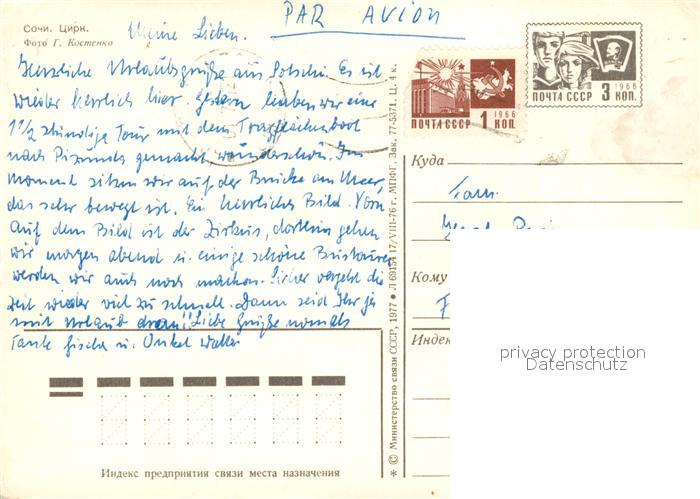 PAR AVION
Сочи. Цирк.
Фото Г. Костенко
Meine Lieben.
Herzliche Urlaubsgrüße aus Sotschi. Es ist
wieder herrlich hier. Gestern haben wir eine
1 1/2 stündige Tour mit dem Tragflächenboot
nach Pizunda gemacht, wunderschön. Im
Moment sitzen wir auf der Brücke am Meer,
das sehr bewegt ist. Ein herrliches Bild. Vorn
auf dem Bild ist der Zirkus, dorthin gehen
wir morgen abend u. einige schöne Bustouren
werden wir auch noch machen. Sicher vergeht die
Zeit wieder viel zu schnell. Dann seid Ihr ja
mit Urlaub dran!! Liebe Grüße nochmals
Tante Gischa u. Onkel Walter
ПОЧТА СССР 1966 1 КОП.
ПОЧТА СССР 1966 3 КОП.
Куда
Fam.
Кому
F
Индек
privacy protection
Datenschutz
Индекс предприятия связи места назначения
* © Министерство связи СССР, 1977 ● Л 69154 17/VIII-76 г. МПФГ. Зак. 77-5371. Ц. 4 к.